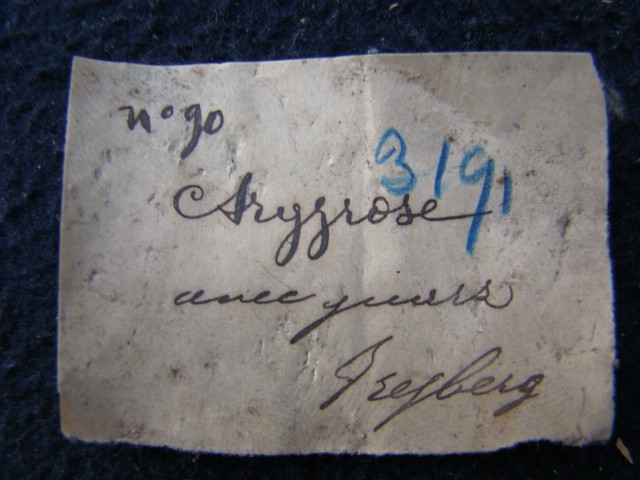 n° 90
3191
Argyrose
avec quarz
Freyberg